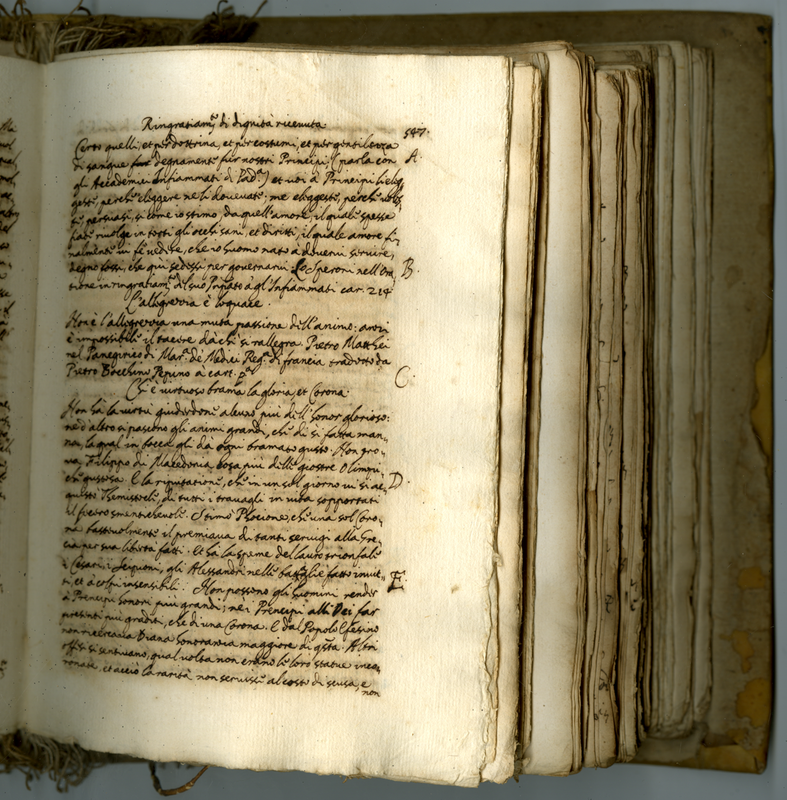 Ringratiam.ti di dignità riceuuta
547.
Certo quelli, et per dottrina, et per costumi, et per gentilezza
di sangue degnamente fur nostri Principi, (parla con A.
gli Accademici Infiammati di Pad.a) et uoi à Principi li eleg
geste, perche eleggere ne li doueuate: me eleggeste, perche
persuasi, si come io stimo, da quell'amore, il quale spesse
fiate riuolge in torti gli occhi sani, et diritti, il quale amore fi-
nalmente ui fe uedere, che io huomo nato à douerui seruire,
degno fossi, che quì sedessi per gouernarui. Lo Speroni nell'Ora B.
tione in ringratiam.to del suo Prĩpato à gl'Infiammati car. 214
L'allegrezza è loquace.
Non è l'allegrezza una muta passione dell'animo: anzi
è impossibile il tacere dà chi si rallegra. Pietro Matthei
nel Panegirico di Mar.a de Medici Reg.a di francia tradotto da
Pietro Bacchino Pepino à cart. p.a C.
Chi è virtuoso brama la gloria, et Corona.
Non hà la uirtù guiderdone alcuno più dell'honor glorioso:
ne d'altro si pascono gli animi grandi, che di si fatta man-
na, la qual in bocca gli dà ogni bramato gusto. Non pro-
ua Filippo di Macedonia cosa più delle giostre Olimpi-
che gustosa. E la riputatione, che in un sol giorno ui si ac- D.
quistò Themistocle, di tutti i trauagli in uita sopportati
il fece smenticheuole. Stimò Phocione, che una sol Coro-
na basteuolmente il premiaua di tanti seruigi alla Gre-
cia per sua libertà fatti. Et hà la speme del lauro trionfale
i Cesari, i Scipioni, gli Alessandri nelle battaglie fatto inuit- E.
ti, et à colpi insensibili. Non possono gli huomini render
à Prencipi honori più grandi; ne i Prencipi alli Dei far
presenti più graditi, che di una Corona. E dal Popolo Efesino
non riceueua Diana honoranza maggiore di q.sta. Altri
offesi si sentiuano, qual uolta non erano le loro statue inco-
ronate. et acciò la rarità non seruisse al costo di scusa, e
non